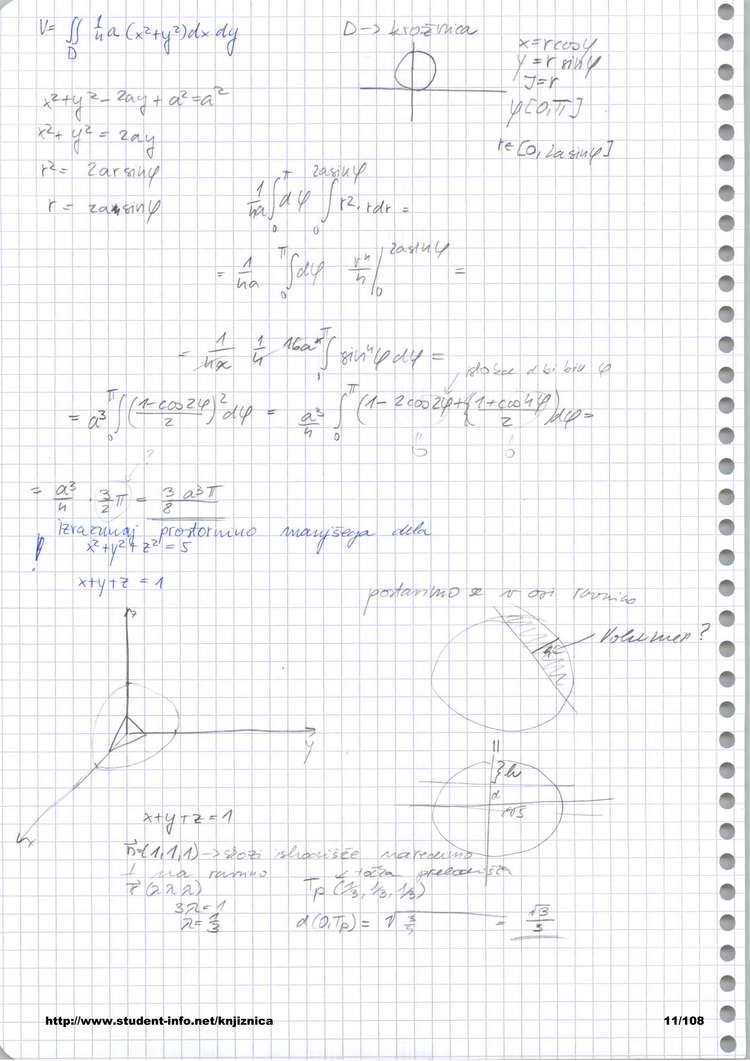 V= ∬ 1/4a (x²+y²)dx dy
D
D → krožnica
x=r cosφ
y=r sinφ
J=r
φ[0,π]
r∈[0,2a sinφ]
x²+y²-2ay+a²=a²
x²+y²=2ay
r²= 2ar sinφ
r= 2a sinφ
1/4a ∫₀^π dφ ∫₀^{2a sinφ} r²·r dr =
= 1/4a ∫₀^π dφ r⁴/4 |₀^{2a sinφ} =
= 1/4a 1/4 16a⁴ ∫₀^π sin⁴φ dφ =
= a³ ∫₀^π ((1-cos2φ)/2)² dφ = a³/4 ∫₀^π (1-2cos2φ+(1+cos4φ)/2) dφ=
0
0
?
= a³/4 · 3/2 π = 3a³π/8
izračunaj prostornino manjšega dela
! x²+y²+z²=5
x+y+z=1
postavimo se v osi ravnino
Volumen?
h
z
y
x
=
}h
d
√5
x+y+z=1
n=(1,1,1) → skozi shodišče naredimo
⊥ na ravnino
r(λ,λ,λ)
točka presečišča
Tp(1/3,1/3,1/3)
3λ=1
λ=1/3
d(0,Tp)= √3/9 = √3/3
http://www.student-info.net/knjiznica
11/108